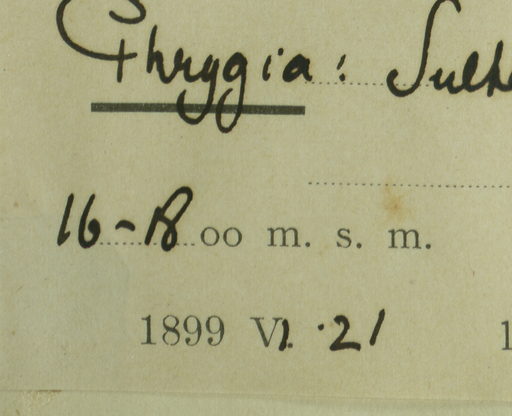 Phrygia: Sult
16-1800 m. s. m.
1899 VI. 21 1